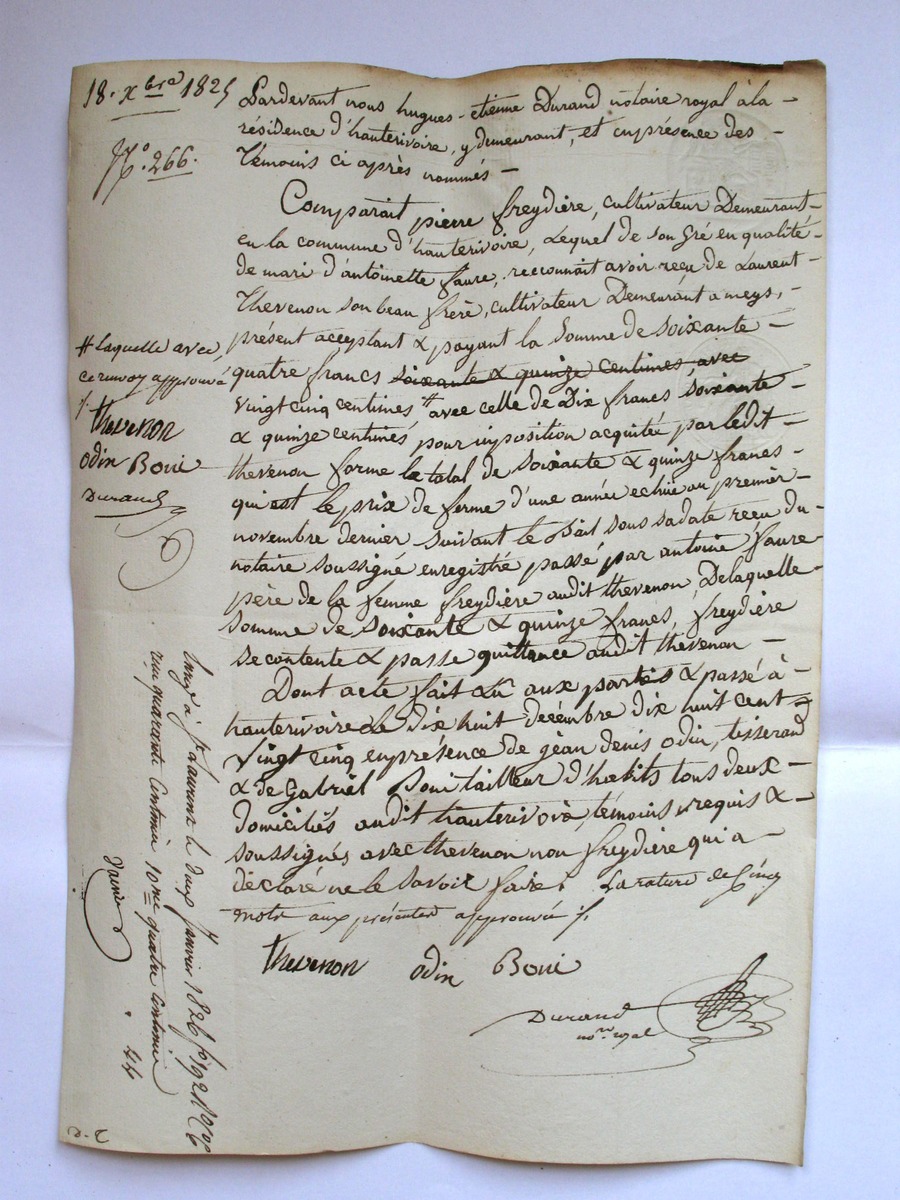 18. Xbre 1825
N.° 266.
Pardevant nous hugues-etienne Durand notaire royal à la
résidence d'hauterivoire, y demeurant, et en présence des
témoins ci après nommés
Comparait pierre freydière, cultivateur Demeurant
en la commune d'hauterivoire, Lequel de son Gré en qualité
de mari d'antoinette faure, reconnait avoir reçu de Laurent
thevenon son beau frère, cultivateur Demeurant a meys,
présent acceptant & payant la somme de soixante
quatre francs soixante & quinze centimes, avec
vingt cinq centimes # avec celle de Dix francs soixante
& quinze centimes pour imposition acquitée par ledit
thevenon forme le total de soixante & quinze francs
qui est le prix de ferme d'une année echue au premier
novembre dernier suivant le Bail sous sa date reçu du
notaire soussigné enregistré passé par antoine faure
père de la femme freydière audit thevenon, De laquelle
somme de soixante & quinze francs, freydière
se contente & passe quittance audit thevenon
Dont acte fait Lû aux parties & passé à
hauterivoire Le dix huit decembre dix huit cent
vingt cinq en présence de jean denis odin, tisserand
& de Gabriel Boui tailleur d'habits tous deux
domiciliés audit hauterivoire, témoins requis &
soussignés avec thevenon non freydière qui a
déclaré ne le savoir faire. La rature de Cinq
mots aux présentes approuvée ./.
thevenon odin Boui
Durand
no.re royal
# Laquelle avec
ce renvoy approuvé
./.
thevenon
odin Boui
Durand
à St Laurent le deux Janvier 1826 f° 192
reçu quarante Centimes 10me quatre Centimes
44